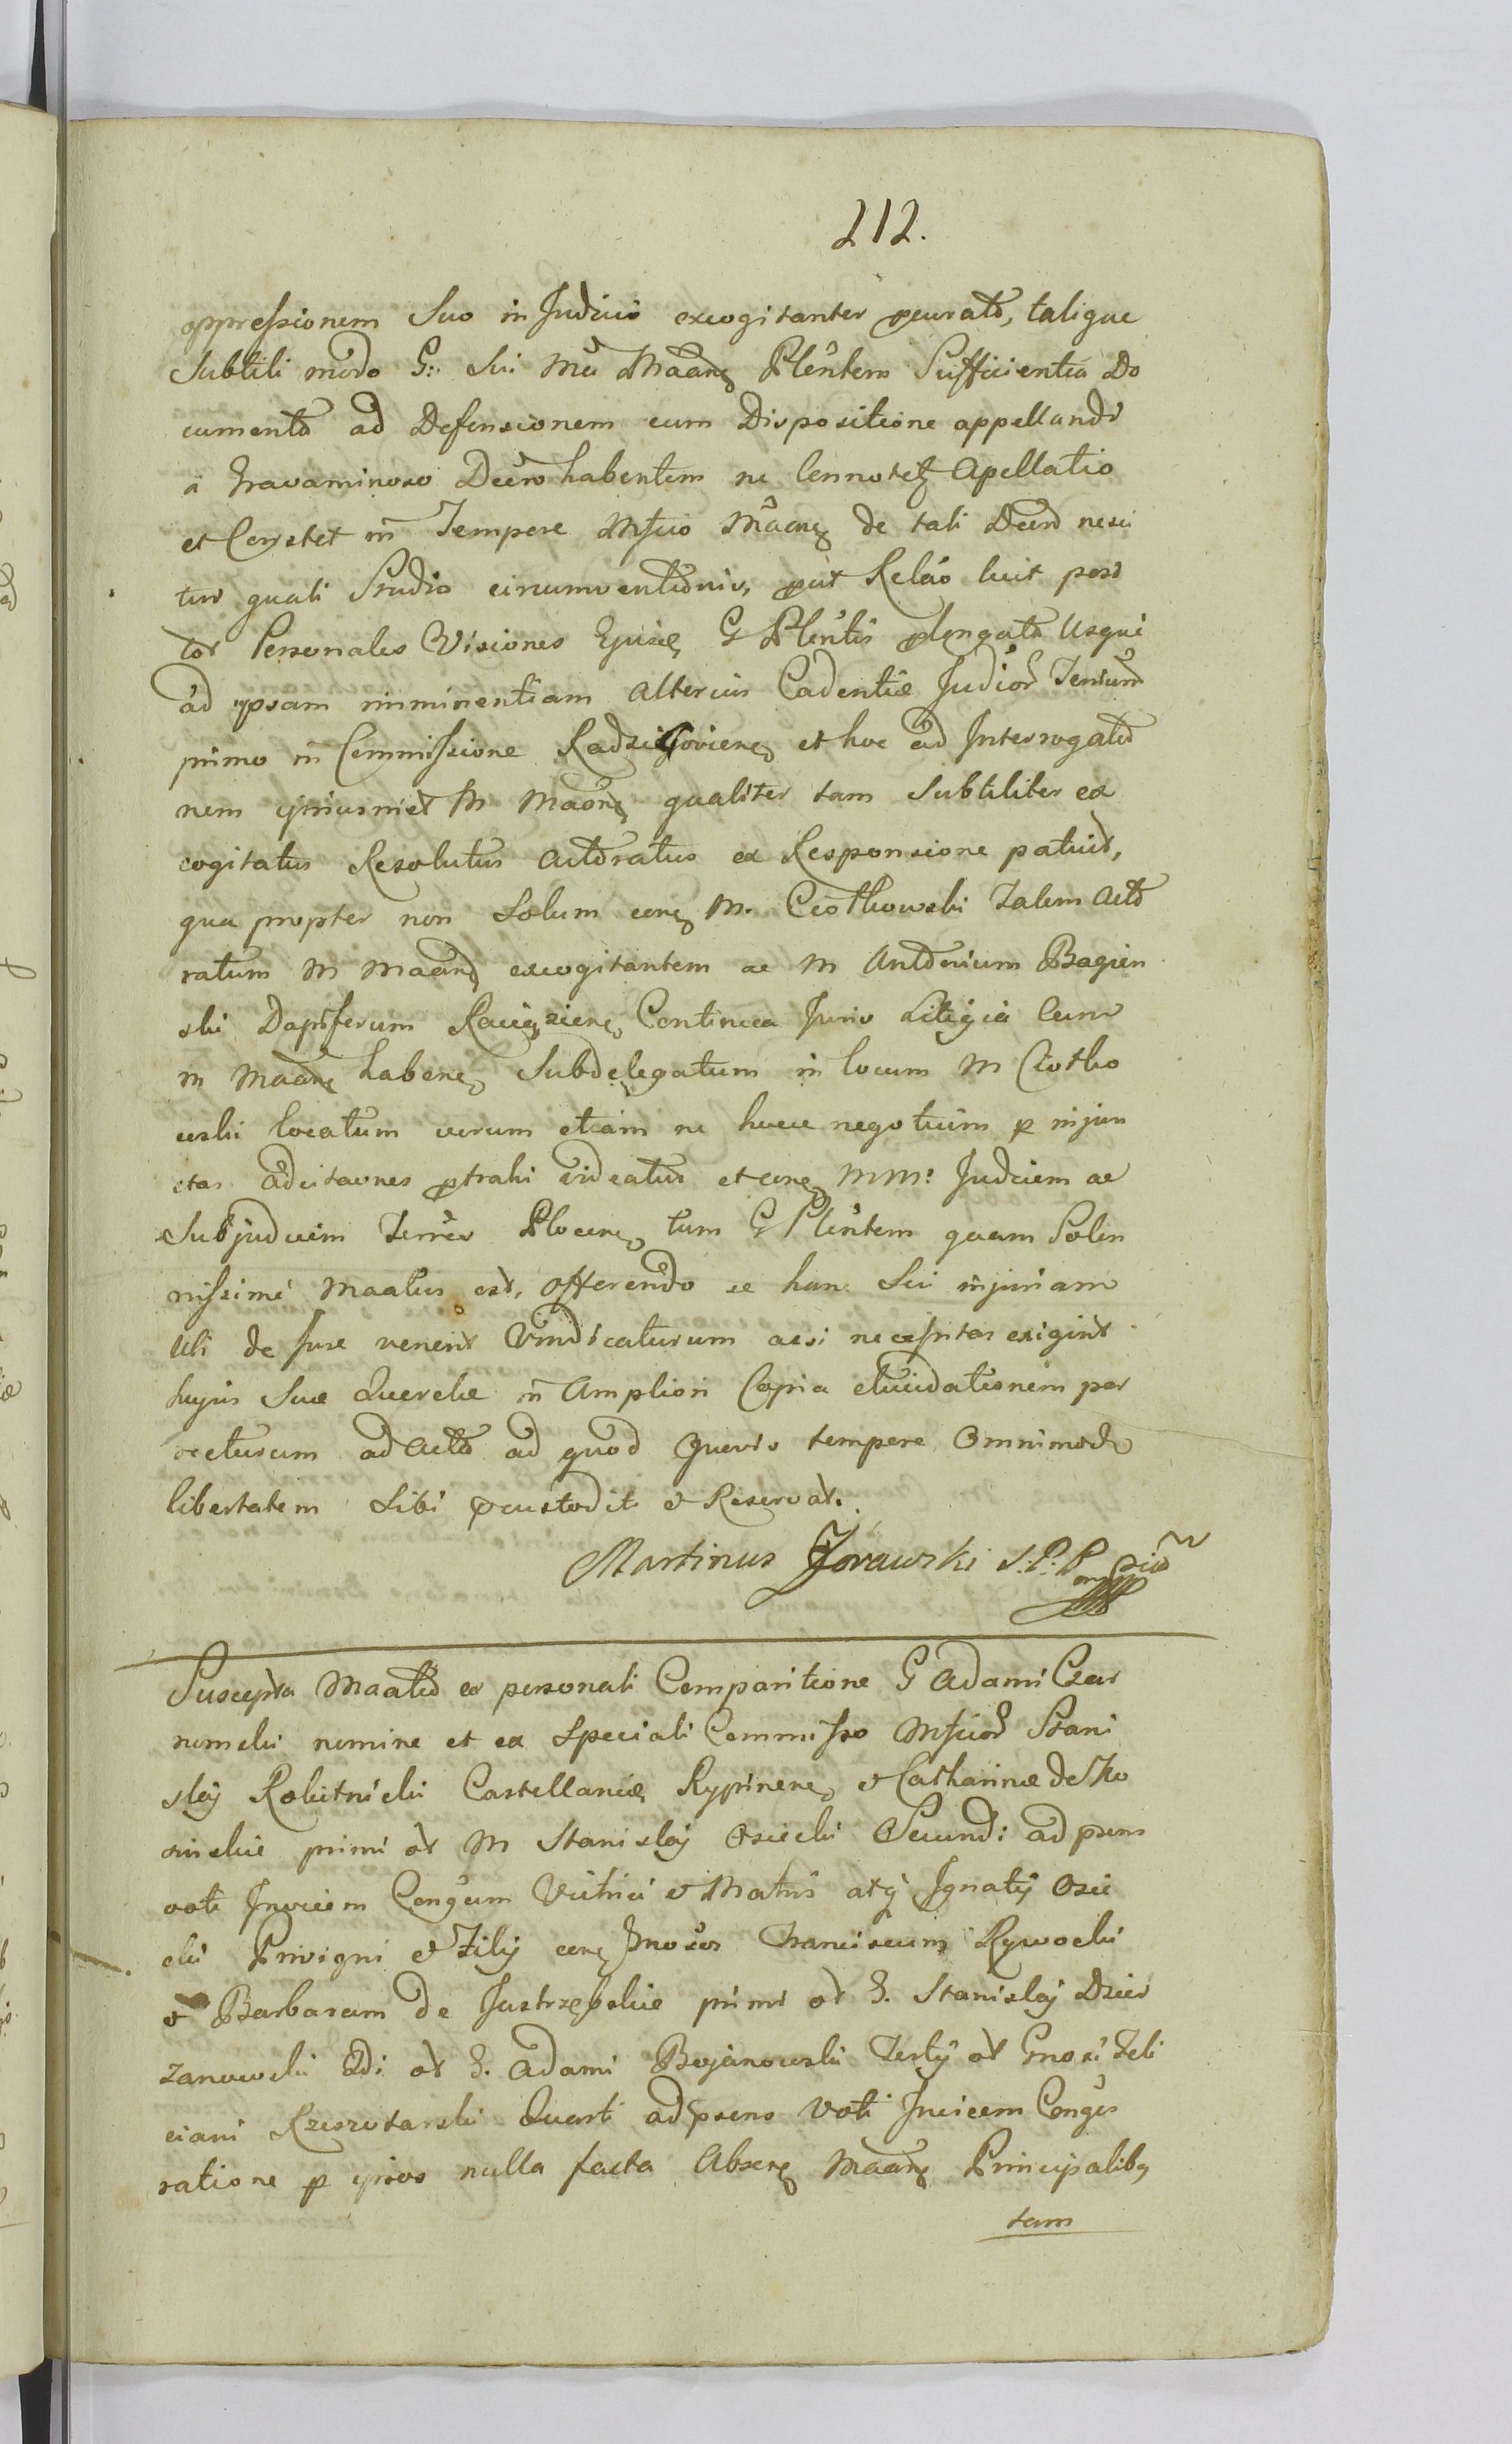 212.
oppressionem Suo in Judicio excogitanter pcurato, talique
Subtili modo G: Sui Mci Maanę Plentem Sufficientia Do
cumenta ad Defensionem cum Dispositione appellandi
a Gravaminoso Decro habentem ne Apellatio
et Constet in Tempore Mfico Maanę de tali Decro nesci
tur quali Studio circumventionis, put Relao
Personales Visiones Ejusdę G Plentis plongata Usque
ad ipsam imminentiam alterius Cadentiæ Judior Terium
primo in Commissione Radziejovienę et hoc ad Interrogatio
nem ipsiusmet M Maanę qualiter tam Subtiliter ex
cogitatus Resolutus actoratus ex Responsione patuit,
qua propter non Solum M. Ciołkowski Talem acto
ratum M Maanę excogitantem ac M Antonium Bagien
ski Dapiferum Raciązienę Continua Juris Litigia Cum
M Maanę habenę Subdelegatum in locum M Ciołko
wski locatum verum etiam ne hocce negotium p injun
ctas aditaones ptrahi videatur et MM: Judicem ac
Subjudicem Terres Plocenę tum G Plentem quam Solen
nissime Maatus est, offerendo se hanc Sui injuriam
Uti de Jure venerit Vindicaturum acsi necessitas exigerit
hujus Suæ Querelæ in Ampliori Copia elucidationem por
recturum ad acta ad quod quovis tempore Omnimodæ
libertatem Sibi pcustodit & Reservat.
Martinus Jorawski
Suscepta Maatio ex personali Comparitione G Adami Czar
nomski nomine et ex Speciali Commisso Mficor Stani
slaj Rokitnicki Castellanię Rypinenę & Catharinæ de Ko
sinskie primi ot M Stanislaj Osiecki Secundi ad psens
voti Invicem Congum Vitrici & Matris atq Ignatij Osie
cki Privigni & Filij Gnosos Franciscum Rywocki
& Barbaram de Jastrzębskie primi ot G. Stanislaj Dzier
zanowski 2di ot G. Adami Bojanowski Tertij ot Gnosi Feli
ciani Rzeszotarski Quarti ad psens Voti Invicem Conges
ratione p ipsos nulla facta Absenę Maanę Principalibq
tam